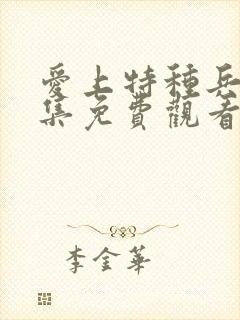 愛上特種兵
集免費觀看
李金華